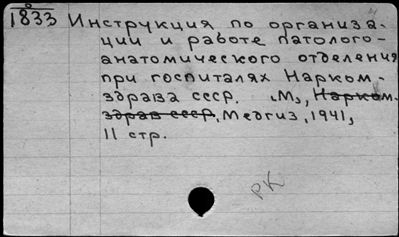 1833 Инструкция по организа-
ции и работе патолого-
анатомического отделения
при госпиталях Нарком-
здрава СССР. М., Нарком.
здрав СССР, Медгиз, 1941,
11 стр.
РК